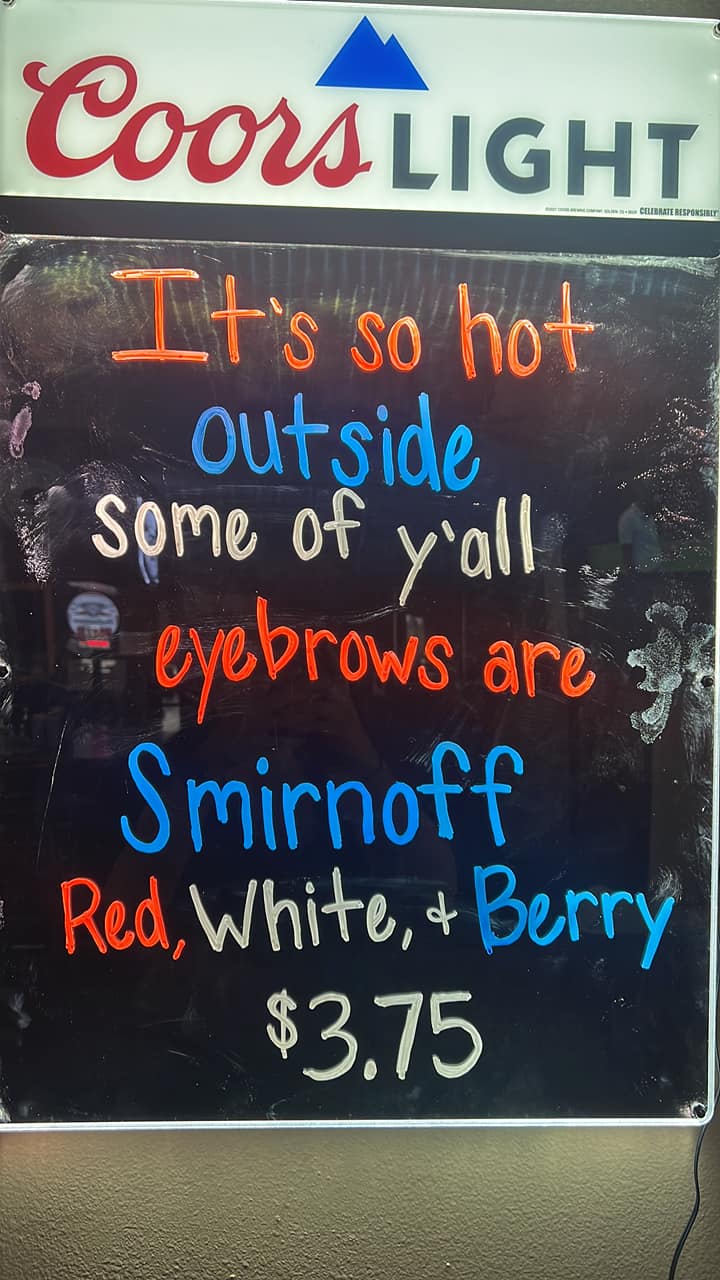 Coors LIGHT
CELEBRATE RESPONSIBLY
It's so hot
outside
some of y'all
eyebrows are
Smirnoff
Red, White, & Berry
$3.75